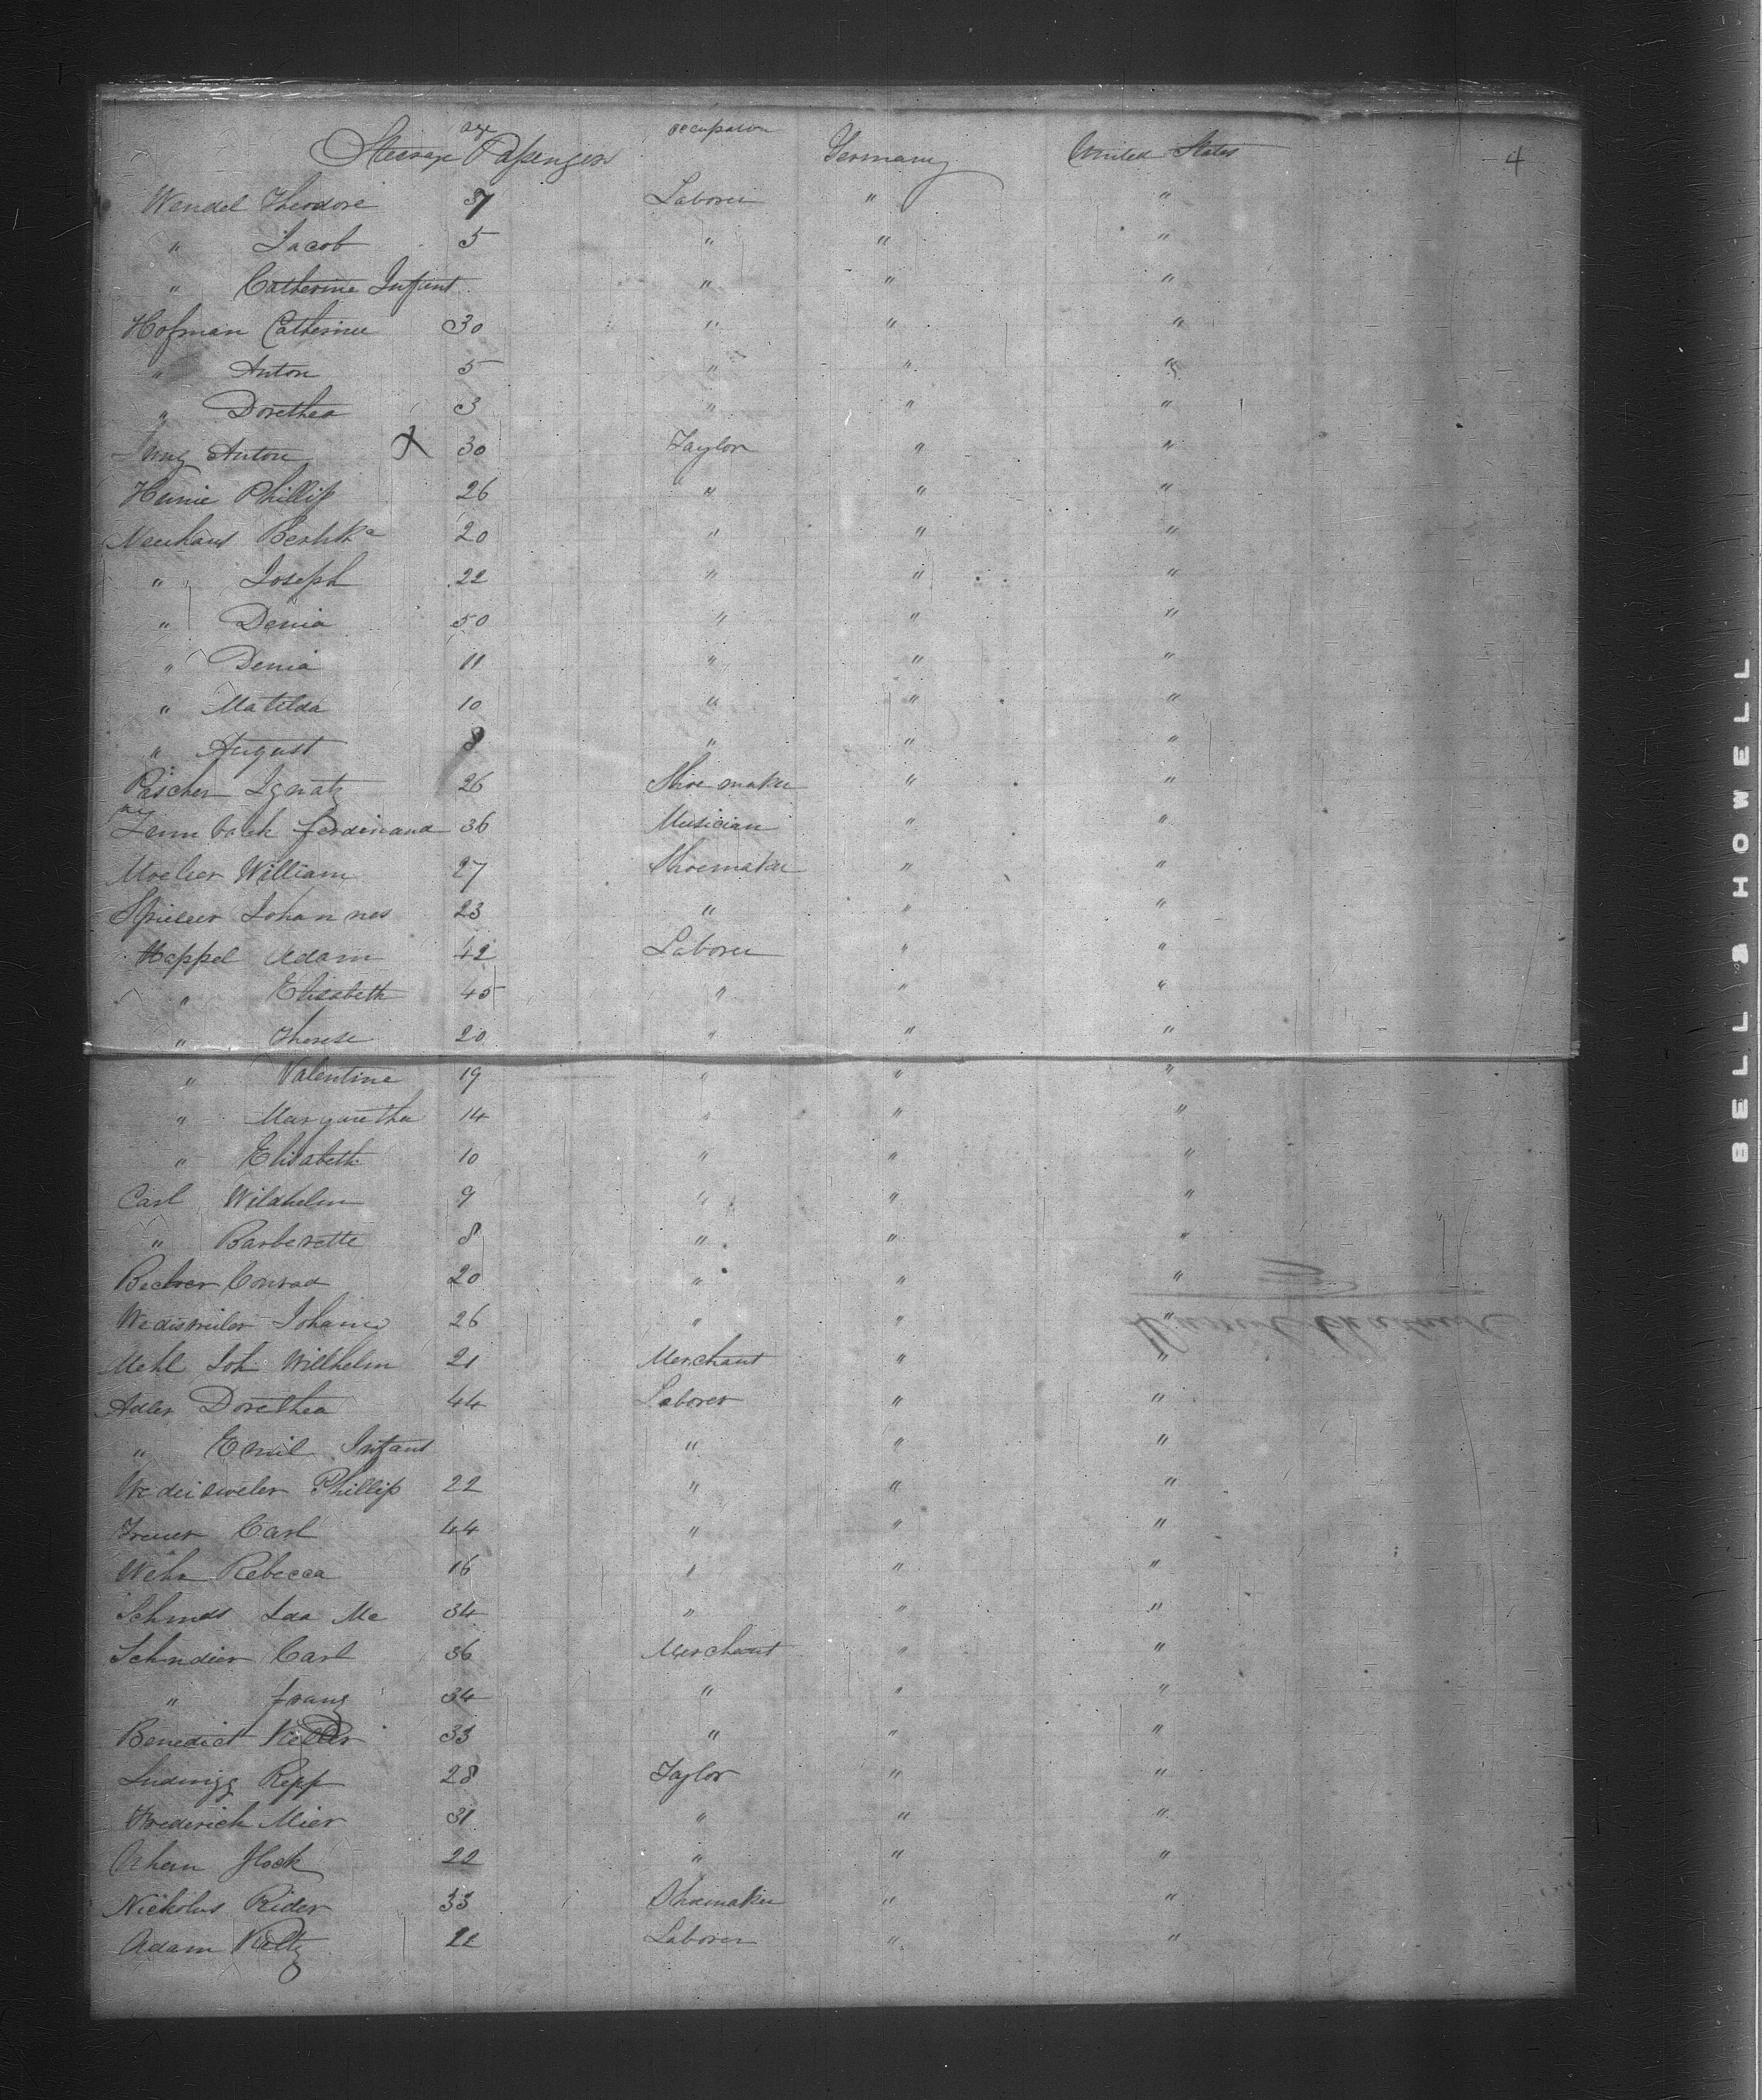 age occupation
Steerage Passengers Germany United States 4
Wendel Theodore 37 Laborer " "
" Jacob 5 " " "
" Catherine Infant " " "
Hofman Catherine 30 " " "
" Anton 5 " " "
" Dorethea 3 " " "
Jung Anton X 30 Taylor " "
Phillip 26 " " "
Neuhaus 20 " " "
" Joseph 22 " " "
" Denia 50 " " "
" Denia 11 " " "
" Matilda 10 " " "
" August 8 " " "
Päscher Ignatz 26 Shoemaker " "
Ferdinand 36 Musician " "
William 27 Shoemaker " "
Johannes 23 " " "
Happel Adam 42 Laborer " "
" Elisabeth 45 " " "
" Therese 20 " " "
" Valentine 19 " " "
" Margaretha 14 " " "
" Elisabeth 10 " " "
Carl Wilahelm 9 " " "
" Barberette 8 " " "
Conrad 20 " " "
Wedisweiler Johann 26 " " "
Mehl Joh Willhelm 21 Merchant " "
Adler Dorethea 44 Laborer " "
" Emil Infant " " "
Wedeisweler Phillip 22 " " "
Carl 44 " " "
Wehr Rebecca 16 " " "
Ida 34 " " "
Schndier Carl 36 Merchant " "
" Franz 34 " " "
Benedict Keller 33 " " "
Ludwigg Repp 28 Taylor " "
Frederich Mier 31 " " "
22 " " "
Nicholus Rider 33 Shoemaker " "
Adam 22 Laborer " "
BELL & HOWELL